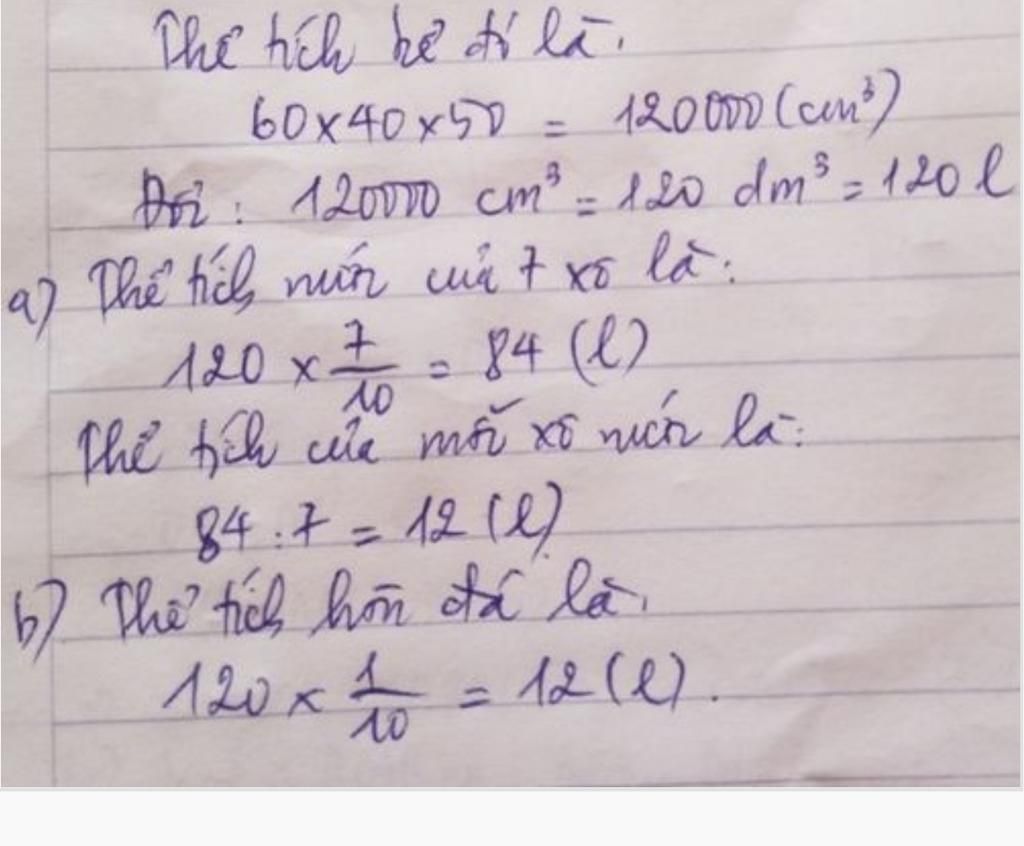 Thể tích bể đó là.
60x40x50 = 120000 (cm³)
Đổi : 120000 cm³ = 120 dm³ = 120 l
a) Thể tích nước của 7 xô là:
120 x 7/10 = 84 (l)
Thể tích của mỗi xô nước là:
84 : 7 = 12 (l)
b) Thể tích hòn đá là.
120 x 1/10 = 12 (l).